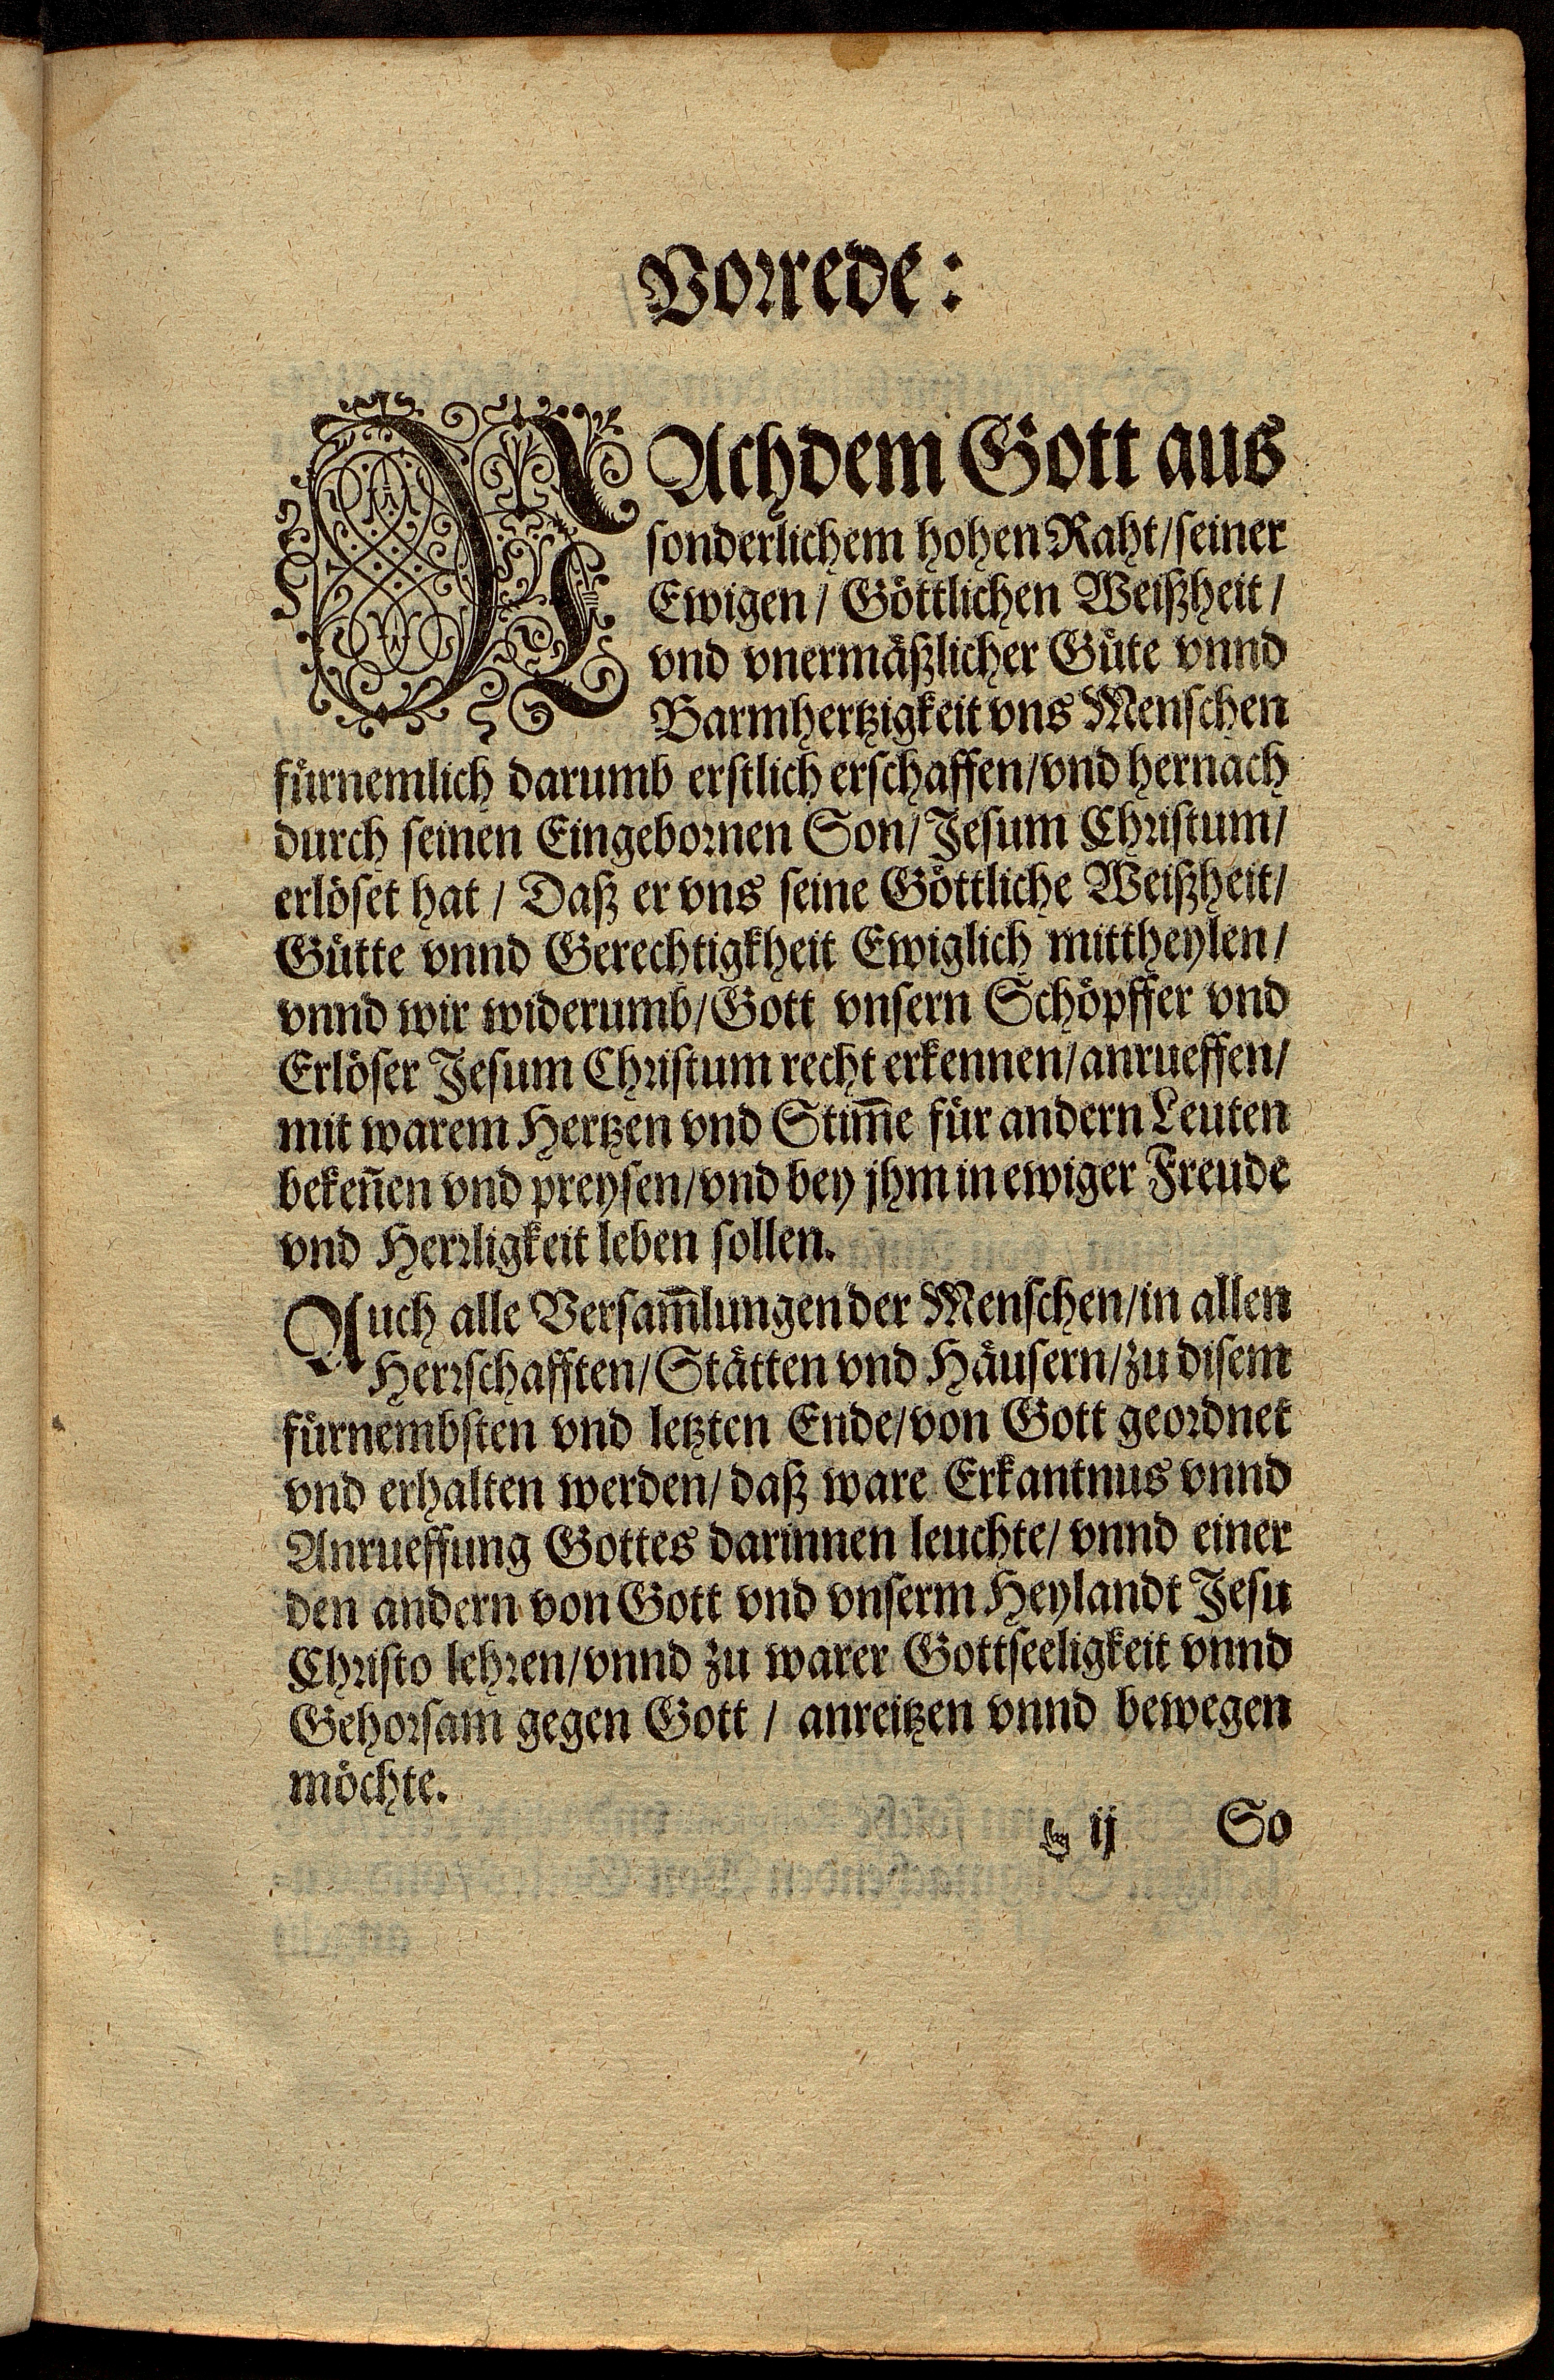 Vorrede:
NAchdem Gott aus
sonderlichem hohen Raht/seiner
Ewigen/ Göttlichen Weißheit/
vnd vnermäßlicher Güte vnnd
Barmhertzigkeit vns Menschen
fürnemlich darumb erstlich erschaffen/vnd hernach
durch seinen Eingebornen Son/Jesum Christum/
erlöset hat/ Daß er vns seine Göttliche Weißheit/
Gütte vnnd Gerechtigkheit Ewiglich mittheylen/
vnnd wir widerumb/Gott vnsern Schöpffer vnd
Erlöser Jesum Christum recht erkennen/anrueffen/
mit warem Hertzen vnd Stim̄e für andern Leuten
beken̄en vnd preysen/vnd bey jhm in ewiger Freude
vnd Herrligkeit leben sollen.
Auch alle Versam̄lungen der Menschen/in allen
Herrschafften/Stätten vnd Häusern/zu disem
fürnembsten vnd letzten Ende/von Gott geordnet
vnd erhalten werden/daß ware Erkantnus vnnd
Anrueffung Gottes darinnen leuchte/vnnd einer
den andern von Gott vnd vnserm Heylandt Jesu
Christo lehren/vnnd zu warer Gottseeligkeit vnnd
Gehorsam gegen Gott/ anreitzen vnnd bewegen
möchte.
ij So